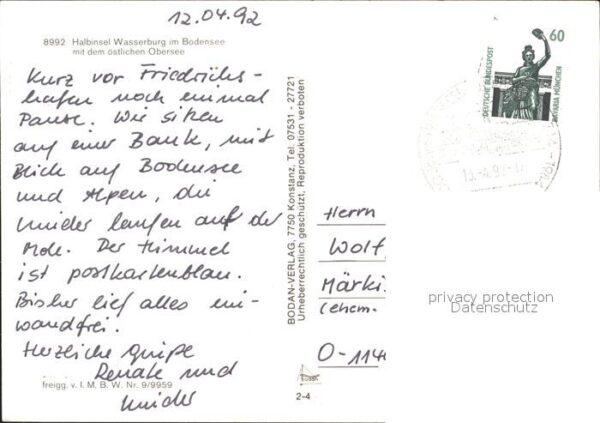 12.04.92
8992 Halbinsel Wasserburg im Bodensee
mit dem östlichen Obersee
Kurz vor Friedrichs-
hafen noch einmal
Pause. Wir sitzen
auf einer Bank, mit
Blick auf Bodensee
und Alpen, die
Kinder laufen auf der
Mole. Der Himmel
ist postkartenblau.
Bisher lief alles ein-
wandfrei.
Herzliche Grüße
Renate und
Kinder
freigg. v. I. M. B. W. Nr. 9/9959
BODAN-VERLAG, 7750 Konstanz, Tel. 07531 - 27721
Urheberrechtlich geschützt, Reproduktion verboten
2-4
60
DEUTSCHE BUNDESPOST
BAVARIA MÜNCHEN
Herrn
Wolf
Märki
(ehem.
O-114
privacy protection
Datenschutz